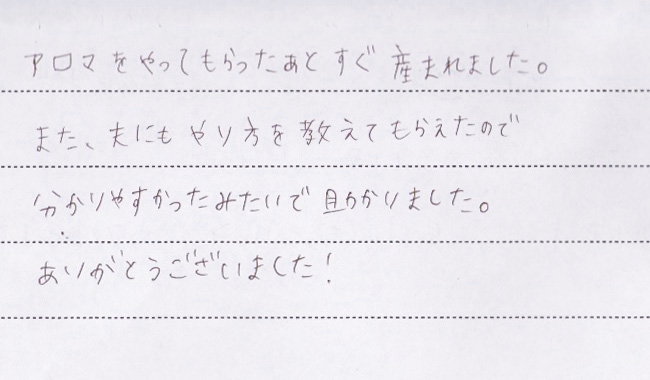 アロマをやってもらったあとすぐ産まれました。
また、夫にもやり方を教えてもらえたので
分かりやすかったみたいで助かりました。
ありがとうございました!